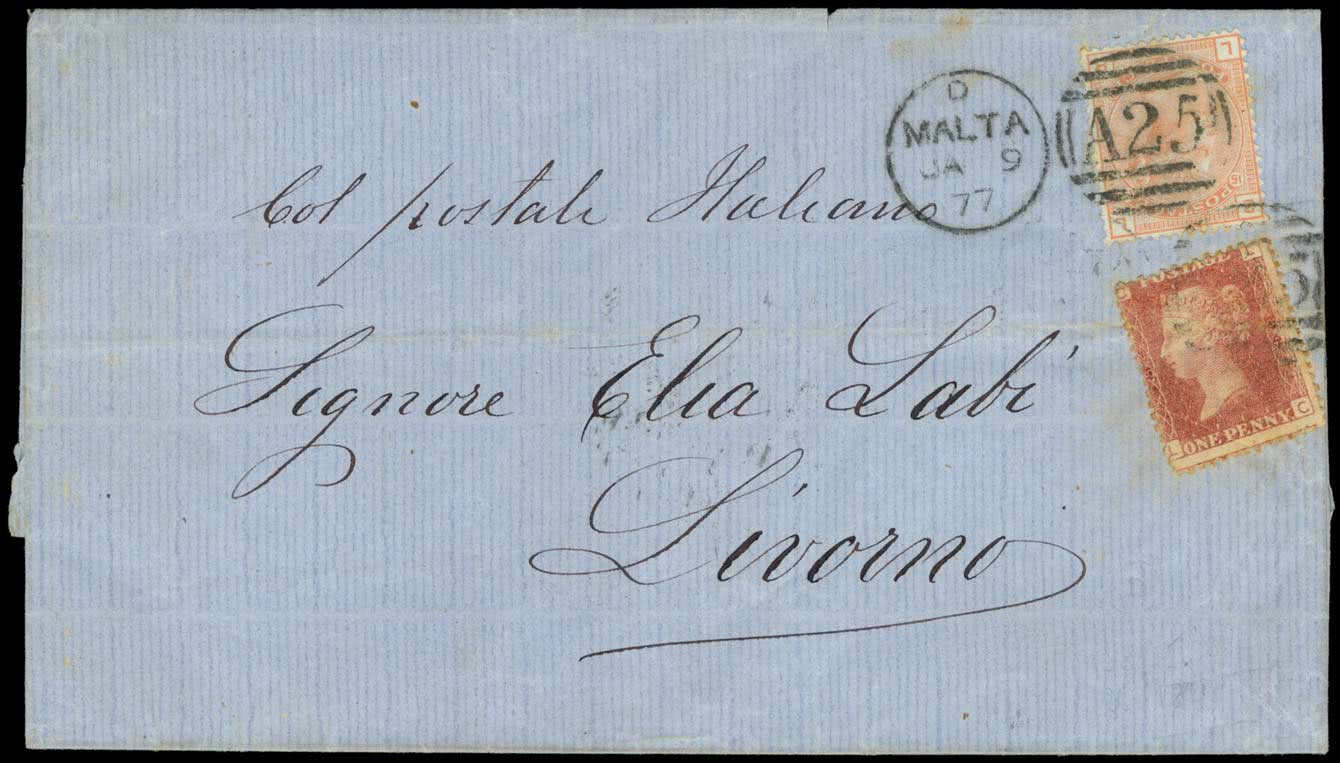 D
MALTA
JA 9
77
A25
L
L
Col postale Italiano
POSTAGE
C L
Signore Elia Labi
L ONE PENNY C
Livorno